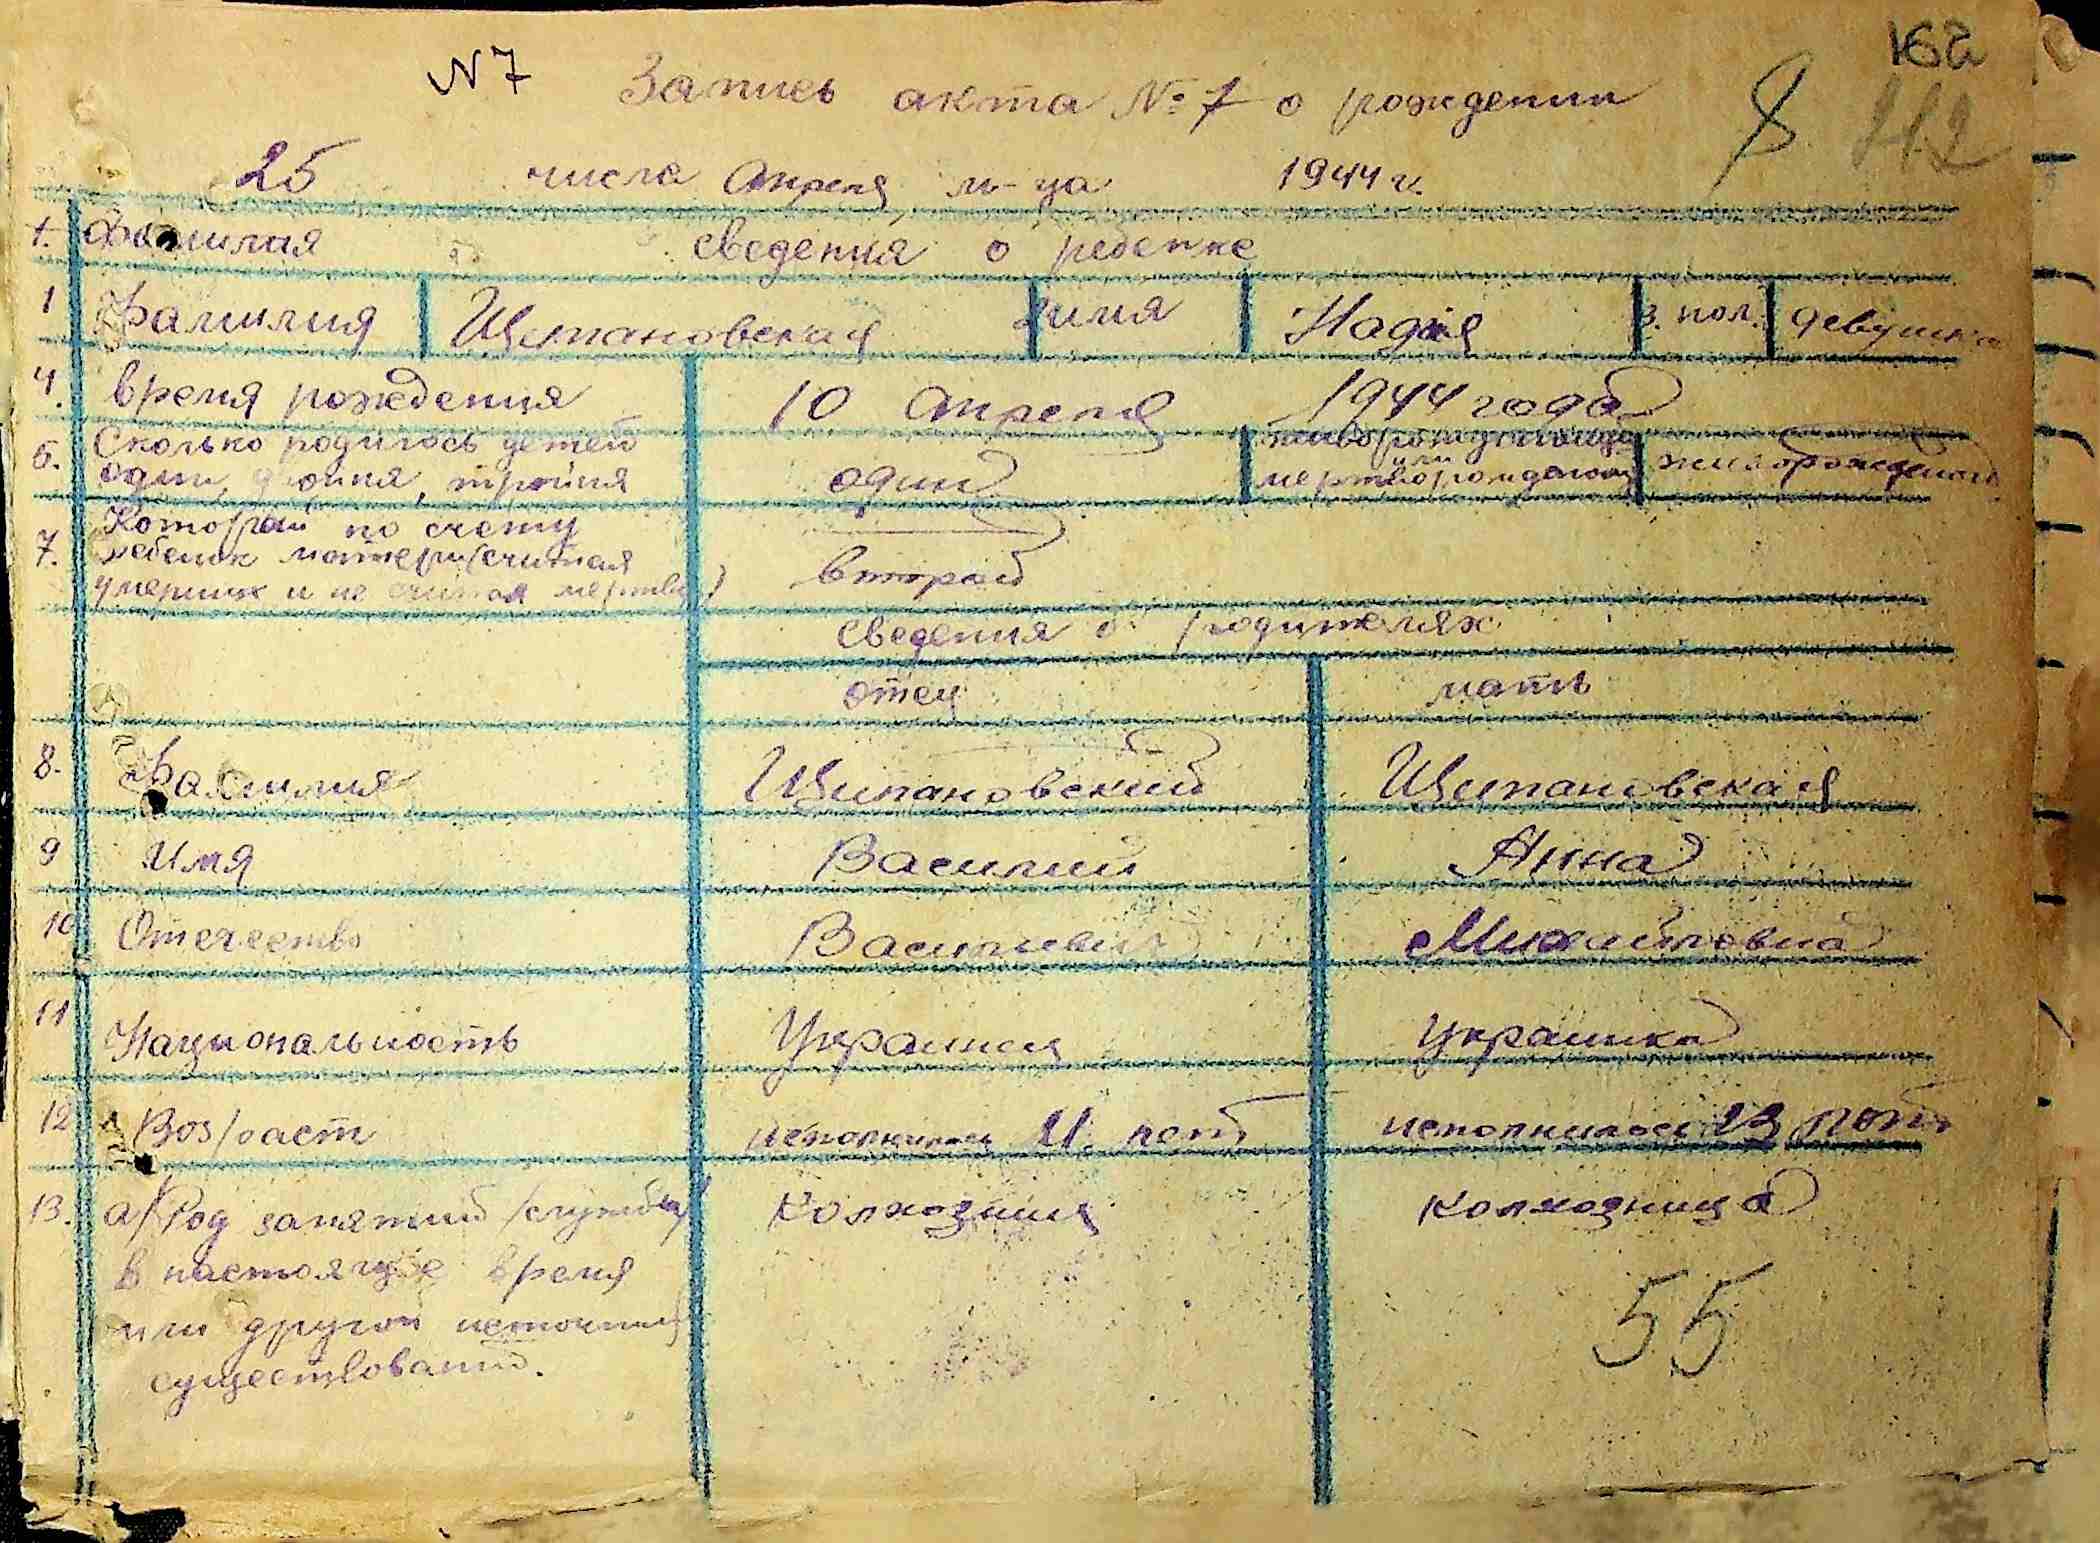 N 7 Запись акта № 7 о рождении
162
8 42
25 числа Апреля м-ца 1944 г.
1. Фамилая сведения о ребенке
1 Фамилия Щипановская 2 имя Надия 3. пол. девушка
4. время рождения 10 Апреля 1944 года
5. Сколько родилось детей один, двойня, тройня один
живорожденный или мертворожденный живорожденный
7. Который по счету ребенок матери (считая умерших и не считая мертвы) второй
сведения о родителях
отец мать
8. Фамилия Щипановский Щипановская
9 Имя Василий Анна
10 Отчество Васильевич Михайловна
11 Национальность Украинец Украинка
12 Возраст исполнилось лет исполнилось 23 лет
13. а/ Род занятий /службы/ Колхозник Колхозница
в настоящее время
или другой источник
существований.
55